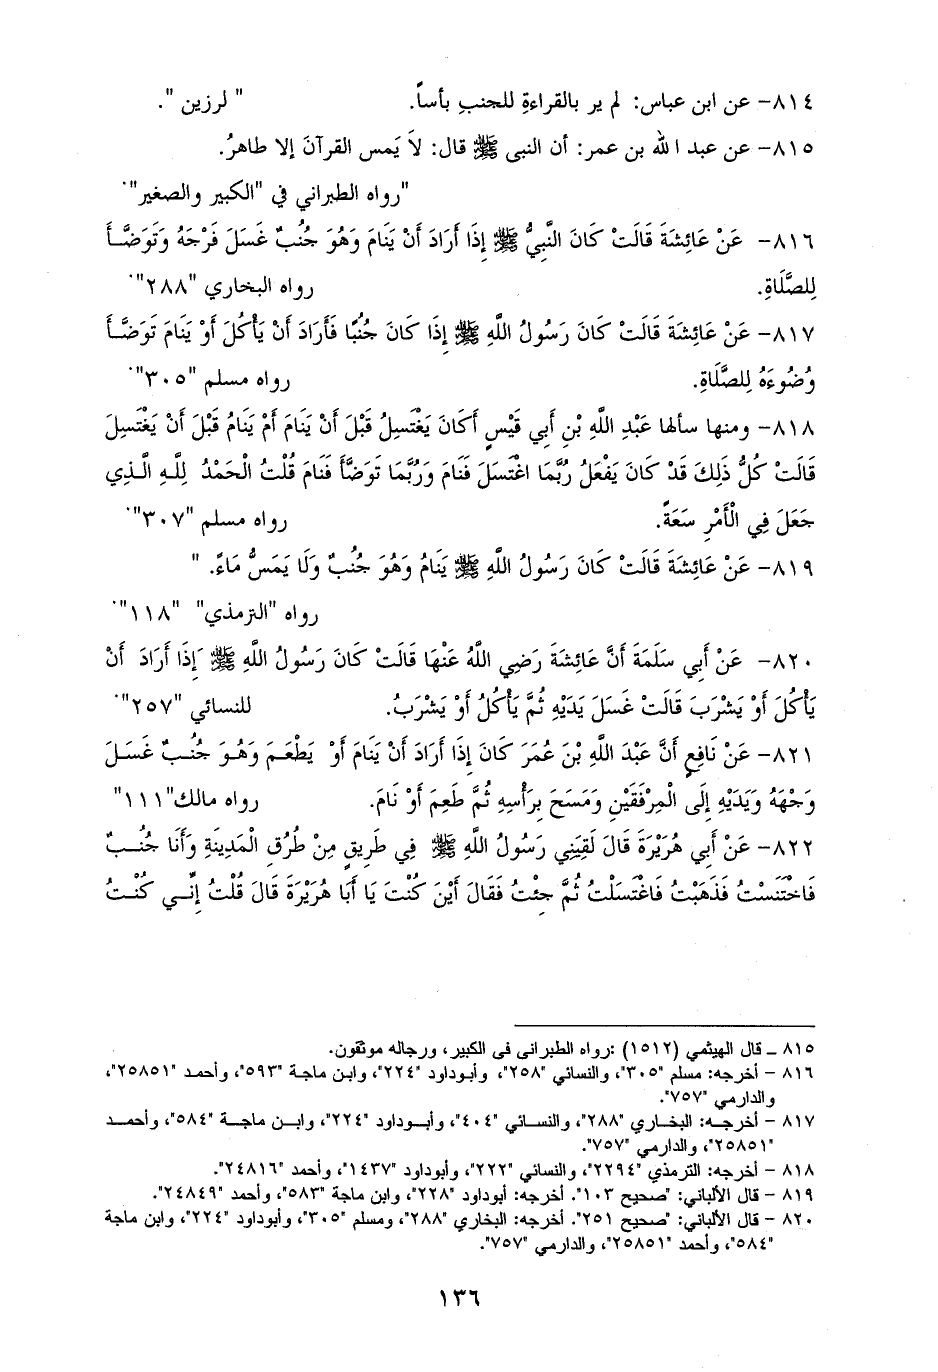 ٨١٤- عن ابن عباس: لم ير بالقراءةِ للجنبِ بأساً. " لرزين ".
٨١٥- عن عبد الله بن عمر: أن النبى ﷺ قال: لاَ يَمس القرآنَ إلا طاهرُ.
"رواه الطبراني في "الكبير والصغير".
٨١٦- عَنْ عَائِشَةَ قَالَتْ كَانَ النَّبِيُّ ﷺ إِذَا أَرَادَ أَنْ يَنَامَ وَهُوَ جُنُبٌ غَسَلَ فَرْجَهُ وَتَوَضَّأَ
لِلصَّلَاةِ. رواه البخاري "٢٨٨".
٨١٧- عَنْ عَائِشَةَ قَالَتْ كَانَ رَسُولُ اللَّهِ ﷺ إِذَا كَانَ جُنُبًا فَأَرَادَ أَنْ يَأْكُلَ أَوْ يَنَامَ تَوَضَّأَ
وُضُوءَهُ لِلصَّلَاةِ. رواه مسلم "٣٠٥".
٨١٨- ومنها سألها عَبْدِ اللَّهِ بْنِ أَبِي قَيْسٍ أَكَانَ يَغْتَسِلُ قَبْلَ أَنْ يَنَامَ أَمْ يَنَامُ قَبْلَ أَنْ يَغْتَسِلَ
قَالَتْ كُلُّ ذَلِكَ قَدْ كَانَ يَفْعَلُ رُبَّمَا اغْتَسَلَ فَنَامَ وَرُبَّمَا تَوَضَّأَ فَنَامَ قُلْتُ الْحَمْدُ لِلَّهِ الَّذِي
جَعَلَ فِي الْأَمْرِ سَعَةً. رواه مسلم "٣٠٧".
٨١٩- عَنْ عَائِشَةَ قَالَتْ كَانَ رَسُولُ اللَّهِ ﷺ يَنَامُ وَهُوَ جُنُبٌ وَلَا يَمَسُّ مَاءً. "
رواه "الترمذي" "١١٨".
٨٢٠- عَنْ أَبِي سَلَمَةَ أَنَّ عَائِشَةَ رَضِي اللَّهُ عَنْهَا قَالَتْ كَانَ رَسُولُ اللَّهِ ﷺ إِذَا أَرَادَ أَنْ
يَأْكُلَ أَوْ يَشْرَبَ قَالَتْ غَسَلَ يَدَيْهِ ثُمَّ يَأْكُلُ أَوْ يَشْرَبُ. للنسائي "٢٥٧".
٨٢١- عَنْ نَافِعٍ أَنَّ عَبْدَ اللَّهِ بْنَ عُمَرَ كَانَ إِذَا أَرَادَ أَنْ يَنَامَ أَوْ يَطْعَمَ وَهُوَ جُنُبٌ غَسَلَ
وَجْهَهُ وَيَدَيْهِ إِلَى الْمِرْفَقَيْنِ وَمَسَحَ بِرَأْسِهِ ثُمَّ طَعِمَ أَوْ نَامَ. رواه مالك"١١١"
٨٢٢- عَنْ أَبِي هُرَيْرَةَ قَالَ لَقِيَنِي رَسُولُ اللَّهِ ﷺ فِي طَرِيقٍ مِنْ طُرُقِ الْمَدِينَةِ وَأَنَا جُنُبٌ
فَاخْتَنَسْتُ فَذَهَبْتُ فَاغْتَسَلْتُ ثُمَّ جِئْتُ فَقَالَ أَيْنَ كُنْتَ يَا أَبَا هُرَيْرَةَ قَالَ قُلْتُ إِنِّي كُنْتُ
٨١٥ - قال الهيثمي (١٥١٢) :رواه الطبرانى فى الكبير، ورجاله موثقون.
٨١٦ - أخرجه: مسلم "٣٠٥"، والنسائي "٢٥٨"، وأبوداود "٢٢٤"، وابن ماجة "٥٩٣"، وأحمد "٢٥٨٥١"،
والدارمي "٧٥٧".
٨١٧ - أخرجه: البخاري "٢٨٨"، والنسائي "٤٠٤"، وأبوداود "٢٢٤"، وابن ماجة "٥٨٤"، وأحمد
"٢٥٨٥١"، والدارمي "٧٥٧".
٨١٨ - أخرجه: الترمذي "٢٢٩٤"، والنسائي "٢٢٢"، وأبوداود "١٤٣٧"، وأحمد "٢٤٨١٦".
٨١٩ - قال الألباني: "صحيح ١٠٣". أخرجه: أبوداود "٢٢٨"، وابن ماجة "٥٨٣"، وأحمد "٢٤٨٤٩".
٨٢٠ - قال الألباني: "صحيح ٢٥١". أخرجه: البخاري "٢٨٨"، ومسلم "٣٠٥"، وأبوداود "٢٢٤"، وابن ماجة
"٥٨٤"، وأحمد "٢٥٨٥١"، والدارمي "٧٥٧".
١٣٦